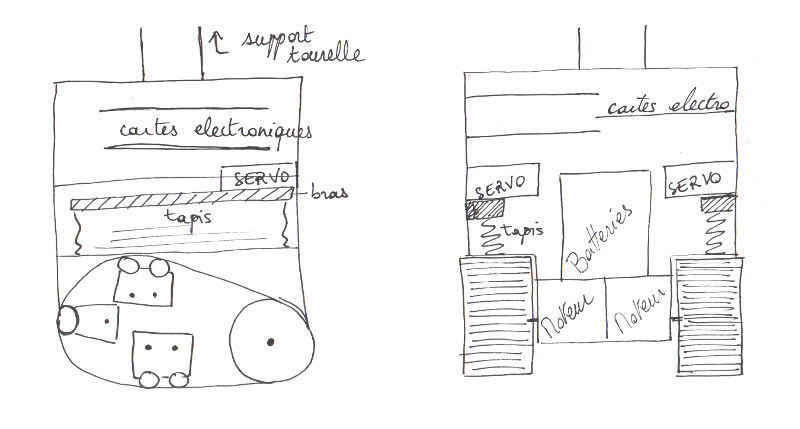 support
tourelle
cartes electroniques
SERVO
bras
tapis
cartes electro
SERVO
SERVO
tapis
Batteries
Moteur
Moteur